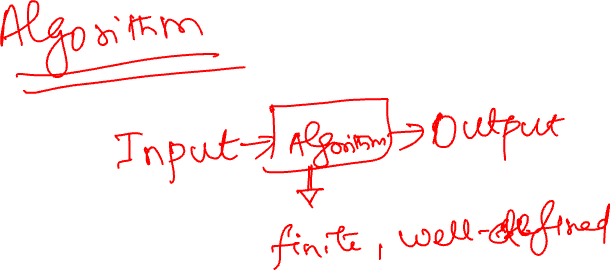 Algorithm
Input → Algorithm → Output
finite, well-defined